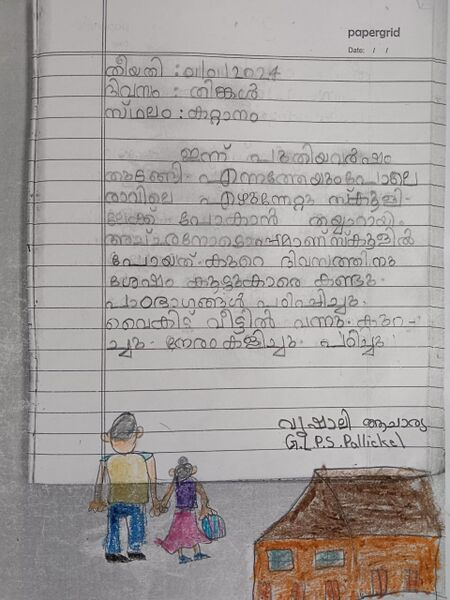 papergrid
Date: / /
തീയതി : 01/01/2024
ദിവസം : തിങ്കൾ
സ്ഥലം : കറ്റാനം
ഇന്ന് പുതിയവർഷം
തുടങ്ങി. എന്നത്തേയുംപോലെ
രാവിലെ എഴുന്നേറ്റു സ്കൂളി-
ലേക്ക് പോകാൻ തയ്യാറായി.
അച്ഛനോടൊപ്പമാണ് സ്കൂളിൽ
പോയത്. കുറെ ദിവസത്തിനു
ശേഷം കൂട്ടുകാരെ കണ്ടു.
പാഠഭാഗങ്ങൾ പഠിച്ചു.
വൈകിട്ട് വീട്ടിൽ വന്നു. കുറ-
ച്ചു നേരം കളിച്ചു. പഠിച്ചു
വൃഷാലി ആചാര്യ
G.L.P.S. Pallickel